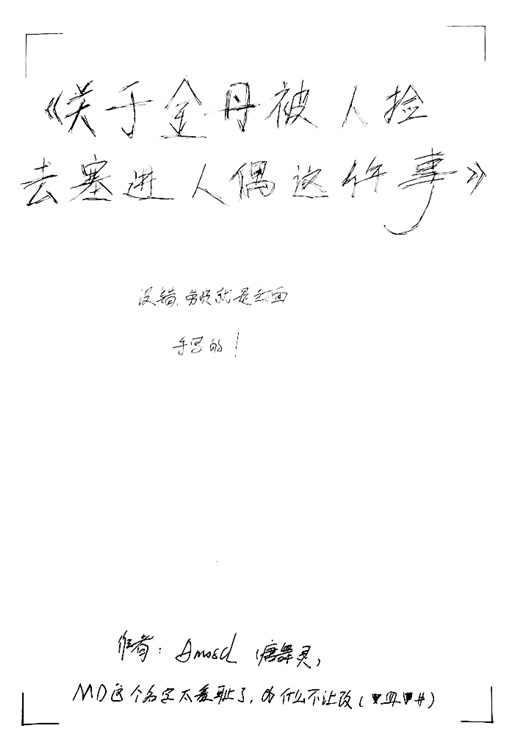 《关于金丹被人捡
去塞进人偶这件事》
没错,劳资就是封面
手写的!
作者: Amosd (唐舞灵)
MD这个名字太羞耻了,为什么不让改(